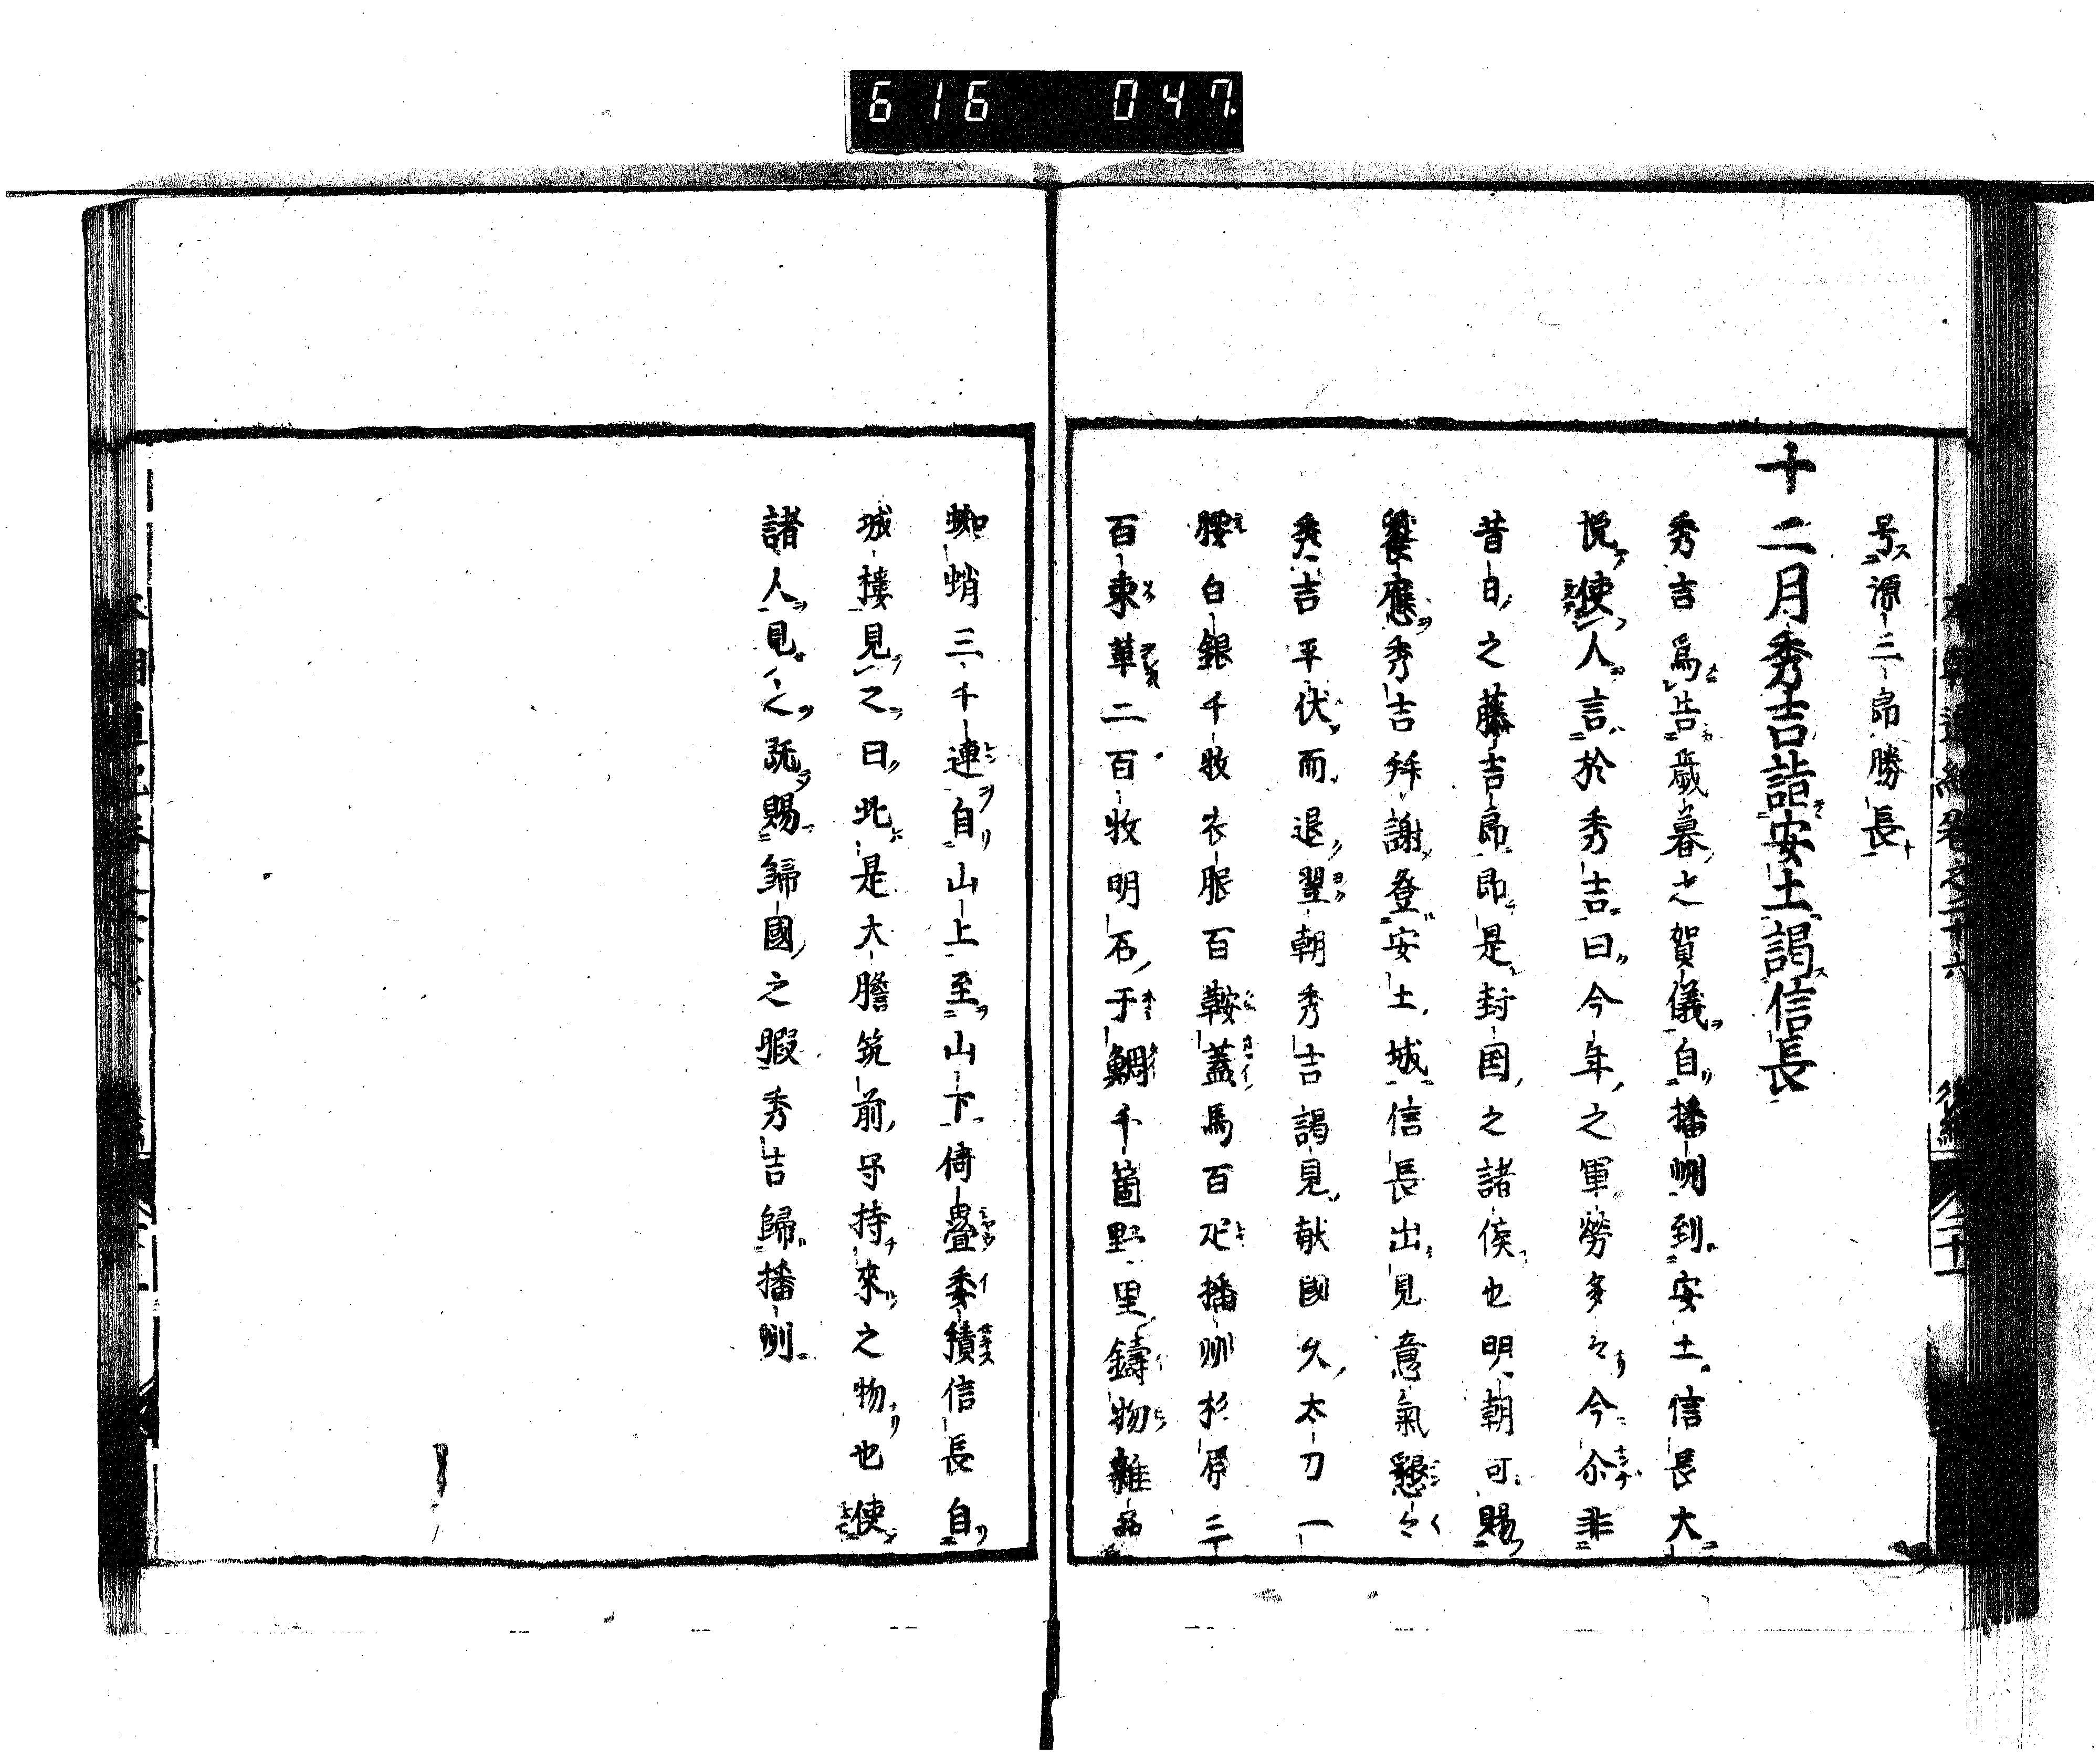 616 047
号源三郎勝長
十二月秀吉詣安土謁信長
秀吉爲告歳暮之賀儀自播州到安土信長大
悦使人言於秀吉曰今年之軍勞多々今尒非
昔日之藤吉郎即是封国之諸侯也明朝可賜
饗應秀吉拜謝登安土城信長出見意氣懇々
秀吉平伏而退翌朝秀吉謁見献國久太刀一
腰白銀千枚衣服百鞍蓋馬百疋播州杉原三
百束革二百枚明石干鯛千箇野里鑄物雜品
蜘蛸三千連自山上至山下倚疊委積信長自
城接見之曰此是大膽筑前守持來之物也使
諸人見之既賜歸國之暇秀吉歸播州